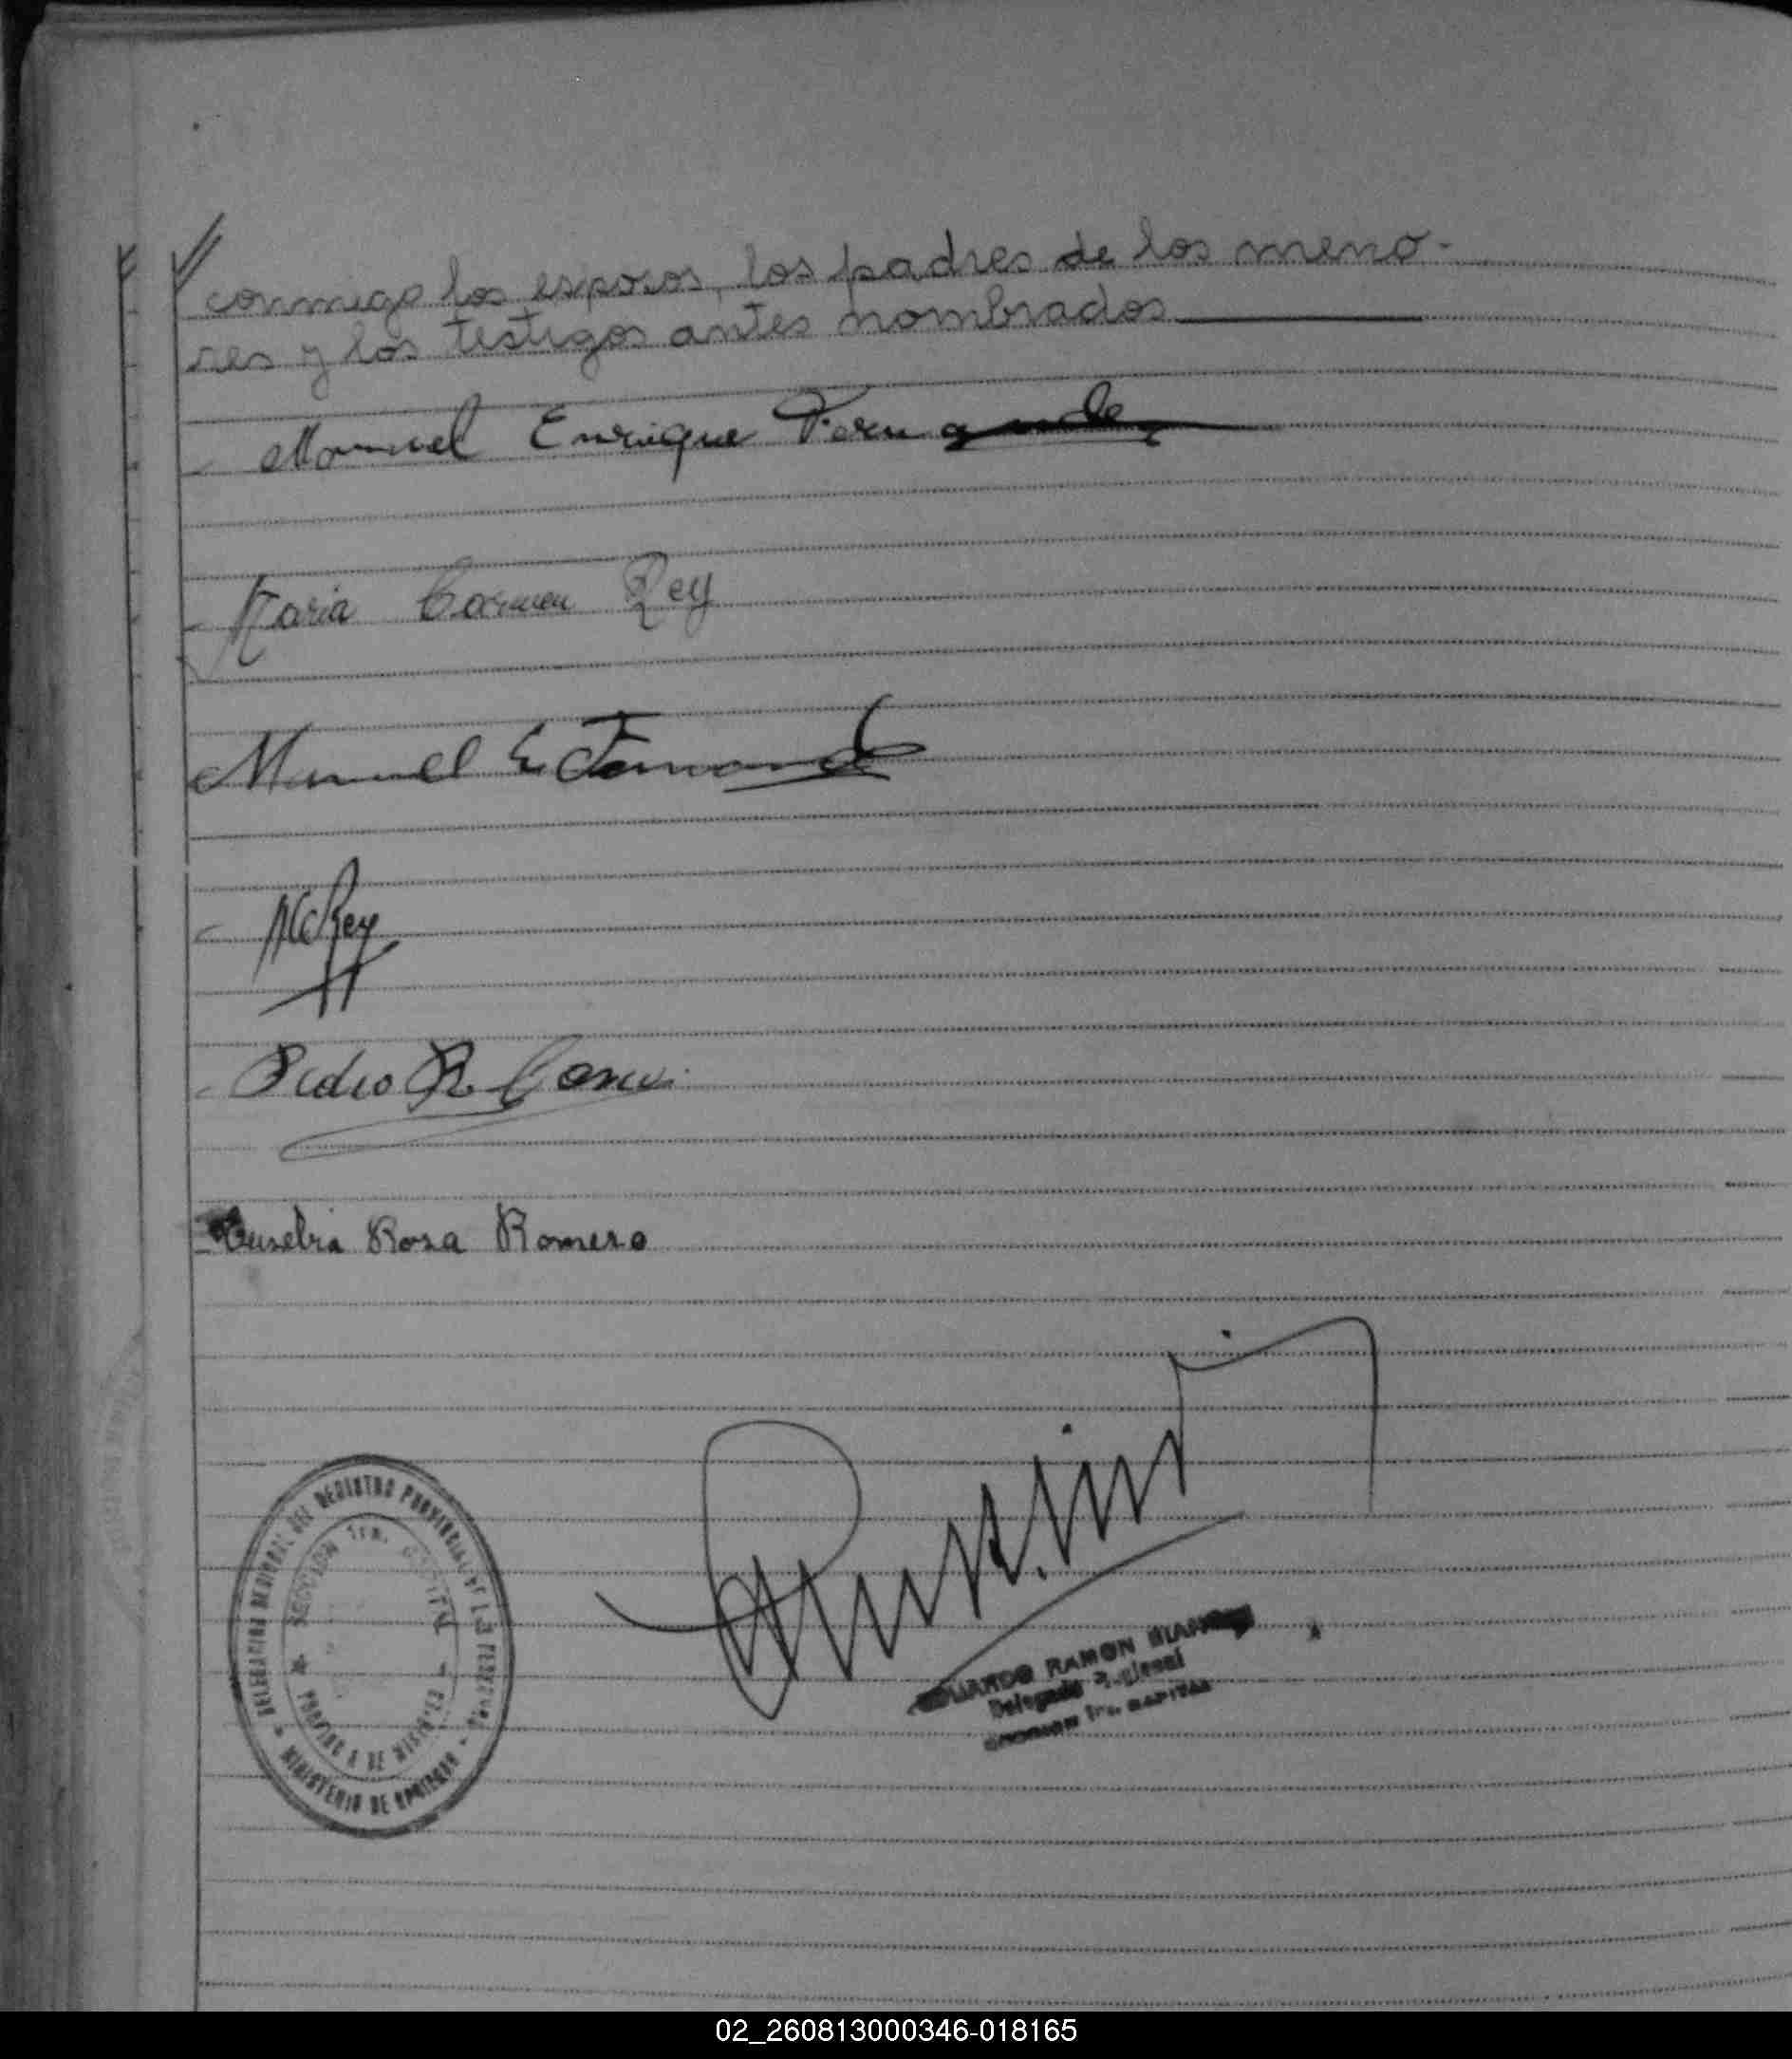 conmigo los esposos, los padres de los meno-
res y los testigos antes nombrados
Manuel Enrique Fernandez
Maria Carmen Rey
Manuel E Fernandez
MC Rey
Pedro R.
Eusebia Rosa Romero
DELEGACION REGIONAL DEL REGISTRO PROVINCIAL DE LAS PERSONAS
MINISTERIO DE GOBIERNO
SECCION 1ra. CAPITAL
PROVINCIA DE MISIONES
EDUARDO RAMON
Delegado Regional
SECCION 1ra. CAPITAL
02_260813000346-018165